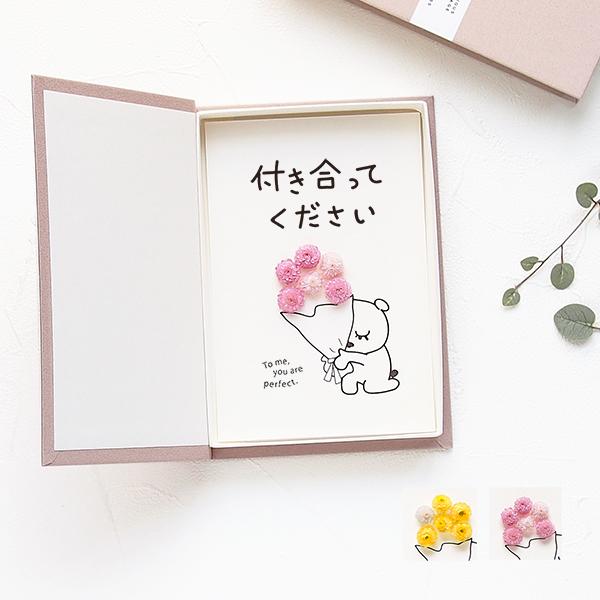 付き合って
ください
To me,
you are
perfect.